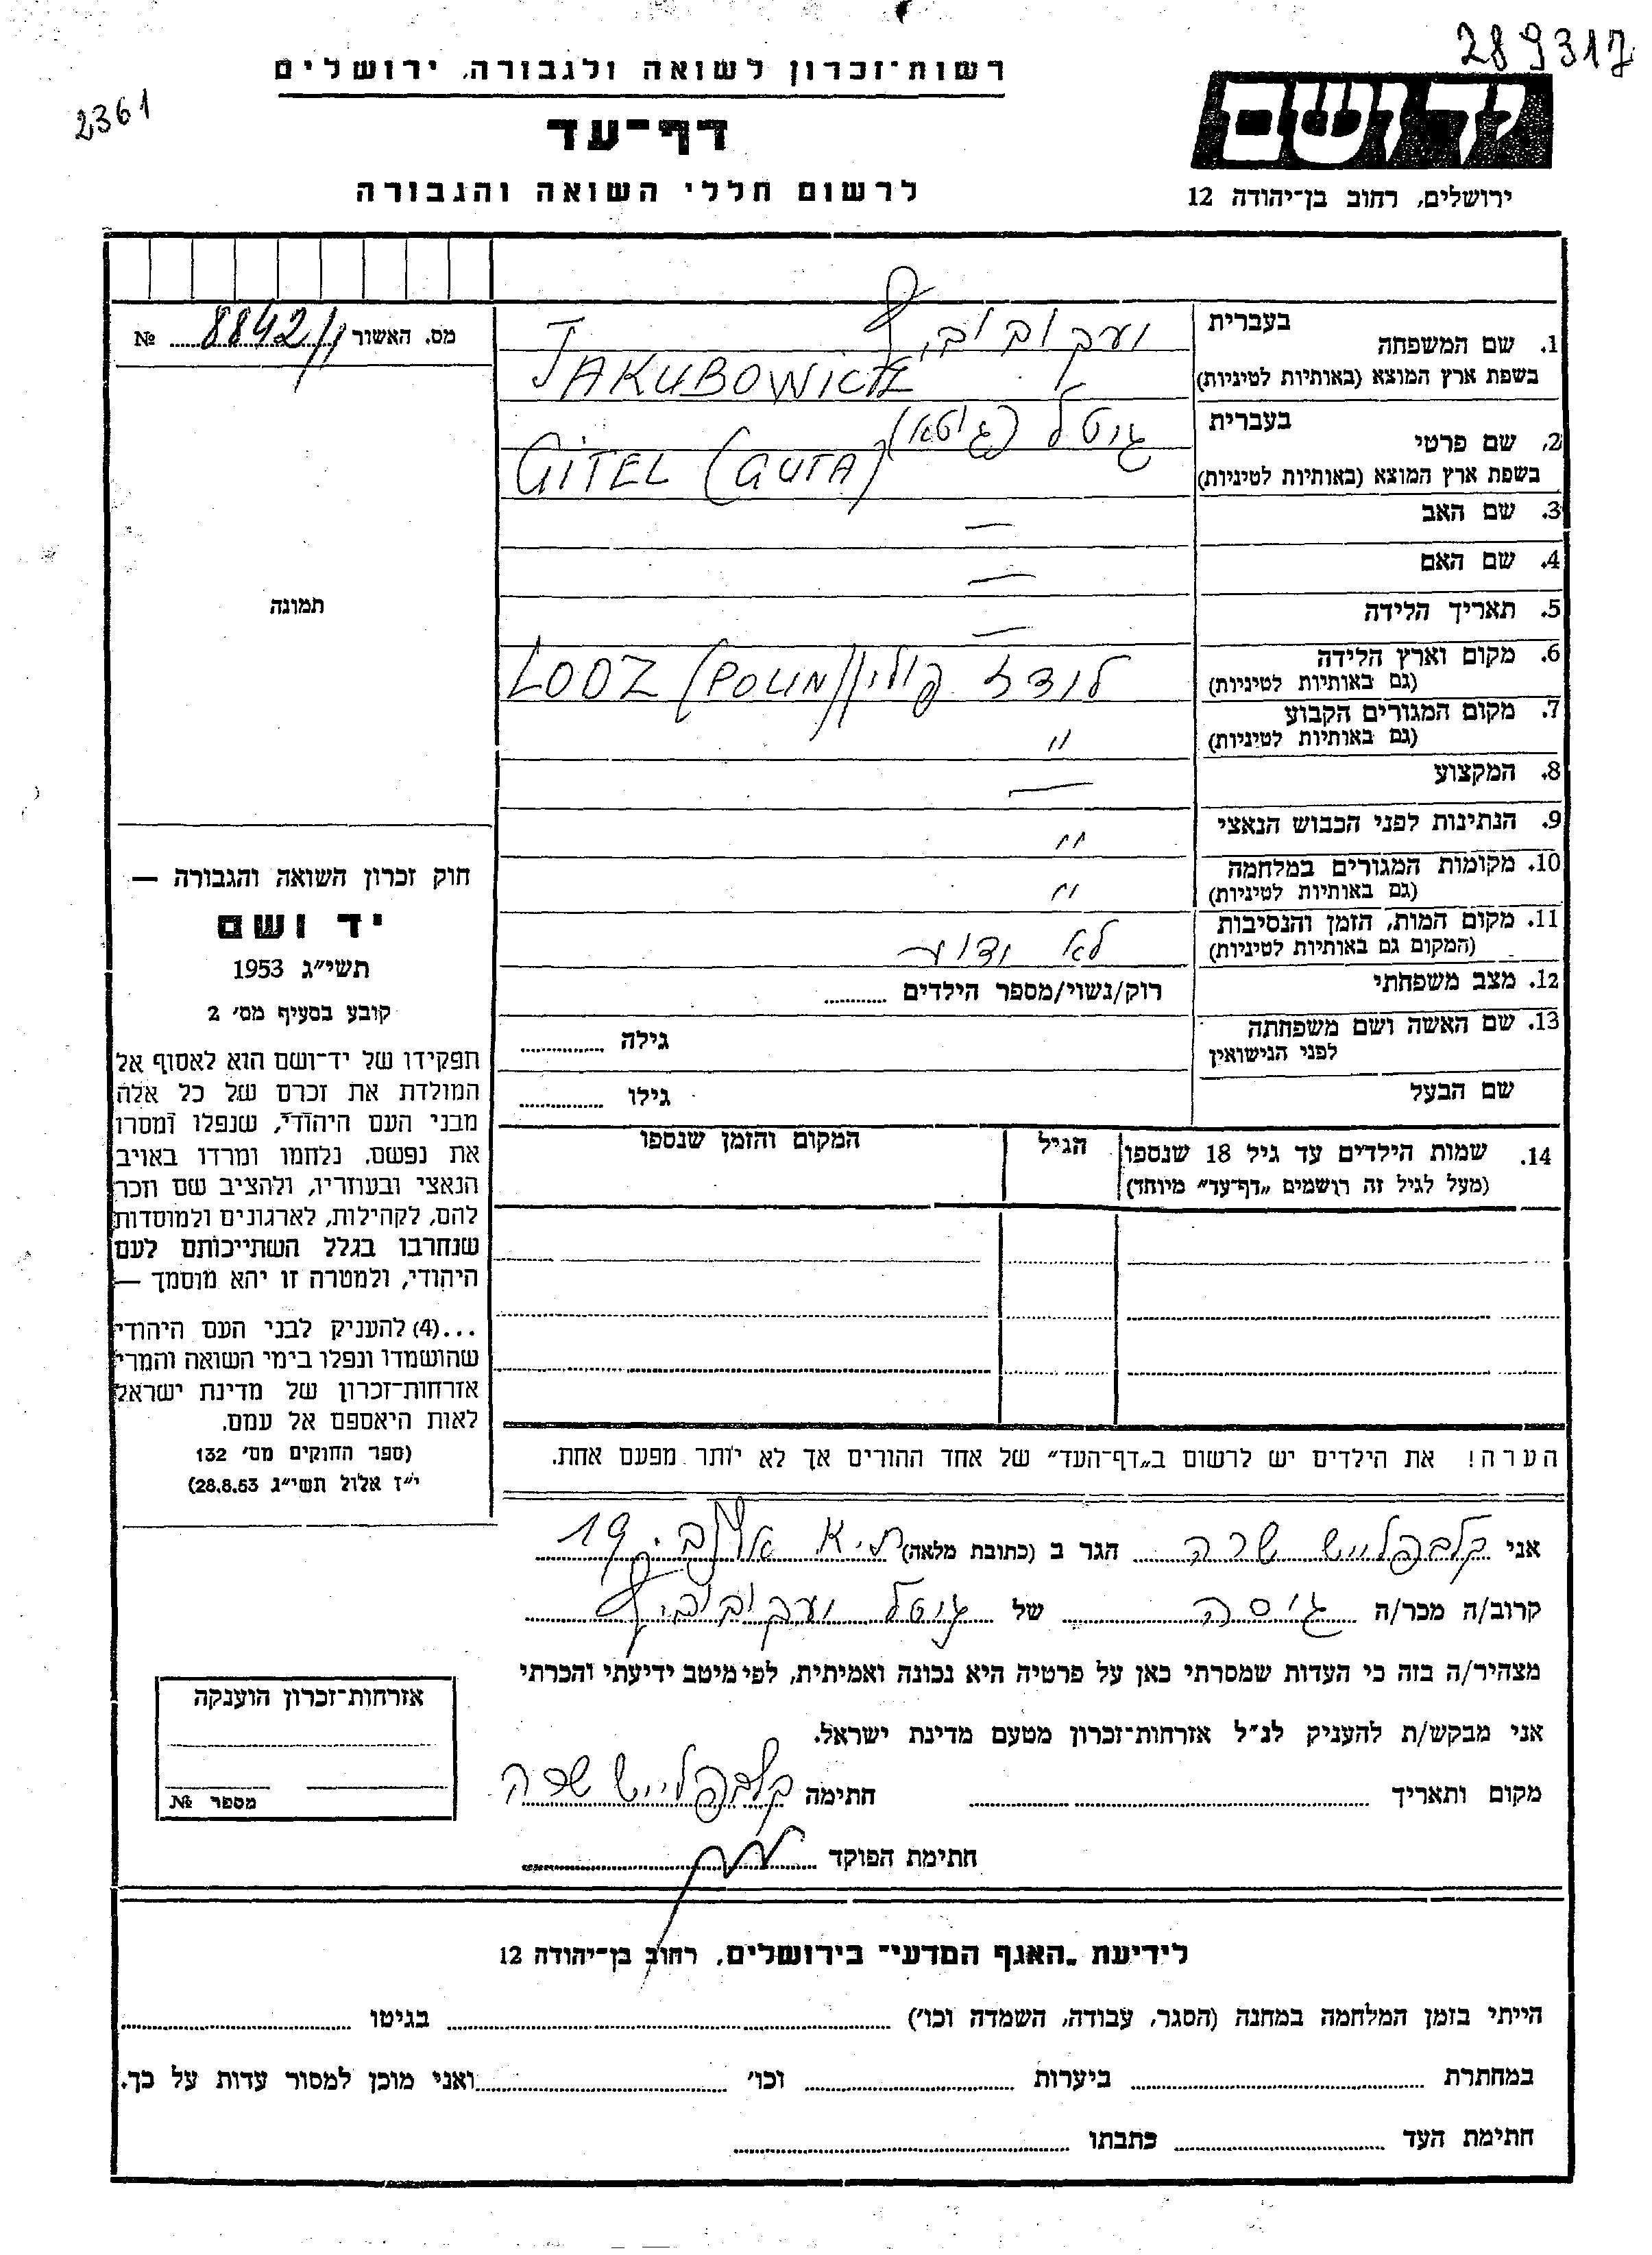 289317
רשות־זכרון לשואה ולגבורה, ירושלים
2361
דף־עד
ידושם
לרשום חללי השואה והגבורה
ירושלים, רחוב בן־יהודה 12
מס. האשור 8842/ №
1. שם המשפחה
בעברית יעקובוביץ
בשפת ארץ המוצא (באותיות לטיניות) JAKUBOWICZ
2. שם פרטי
בעברית גיטל (גוטא)
בשפת ארץ המוצא (באותיות לטיניות) GITEL (GUTA)
3. שם האב —
4. שם האם —
5. תאריך הלידה —
תמונה
6. מקום וארץ הלידה לודז פולין LODZ (POLIN)
(גם באותיות לטיניות)
7. מקום המגורים הקבוע "
(גם באותיות לטיניות)
8. המקצוע —
9. הנתינות לפני הכבוש הנאצי "
10. מקומות המגורים במלחמה "
(גם באותיות לטיניות)
11. מקום המות, הזמן והנסיבות לא ידוע
(המקום גם באותיות לטיניות)
12. מצב משפחתי רוק/נשוי/מספר הילדים
13. שם האשה ושם משפחתה גילה
לפני הנישואין
שם הבעל גילו
14. שמות הילדים עד גיל 18 שנספו הגיל המקום והזמן שנספו
(מעל לגיל זה רושמים „דף־עד" מיוחד)
חוק זכרון השואה והגבורה —
יד ושם
תשי"ג 1953
קובע בסעיף מס' 2
תפקידו של יד־ושם הוא לאסוף אל
המולדת את זכרם של כל אלה
מבני העם היהודי, שנפלו ומסרו
את נפשם, נלחמו ומרדו באויב
הנאצי ובעוזריו, ולהציב שם וזכר
להם, לקהילות, לארגונים ולמוסדות
שנחרבו בגלל השתייכותם לעם
היהודי, ולמטרה זו יהא מוסמך —
...(4) להעניק לבני העם היהודי
שהושמדו ונפלו בימי השואה והמרי
אזרחות־זכרון של מדינת ישראל
לאות היאספם אל עמם.
(ספר החוקים מס' 132
י"ז אלול תשי"ג 28.8.53)
הערה! את הילדים יש לרשום ב„דף־העד" של אחד ההורים אך לא יותר מפעם אחת.
אני קלבפלייש שרה הגר ב (כתובת מלאה) ת.א 19
קרוב/ה מכר/ה גיסה של גיטל יעקובוביץ
מצהיר/ה בזה כי העדות שמסרתי כאן על פרטיה היא נכונה ואמיתית, לפי מיטב ידיעתי והכרתי
אני מבקש/ת להעניק לנ"ל אזרחות־זכרון מטעם מדינת ישראל.
מקום ותאריך חתימה קלבפלייש שרה
חתימת הפוקד
אזרחות־זכרון הוענקה
מספר №
לידיעת „האגף המדעי" בירושלים, רחוב בן־יהודה 12
הייתי בזמן המלחמה במחנה (הסגר, עבודה, השמדה וכו') בגיטו
במחתרת ביערות וכו' ואני מוכן למסור עדות על כך.
חתימת העד כתבתו